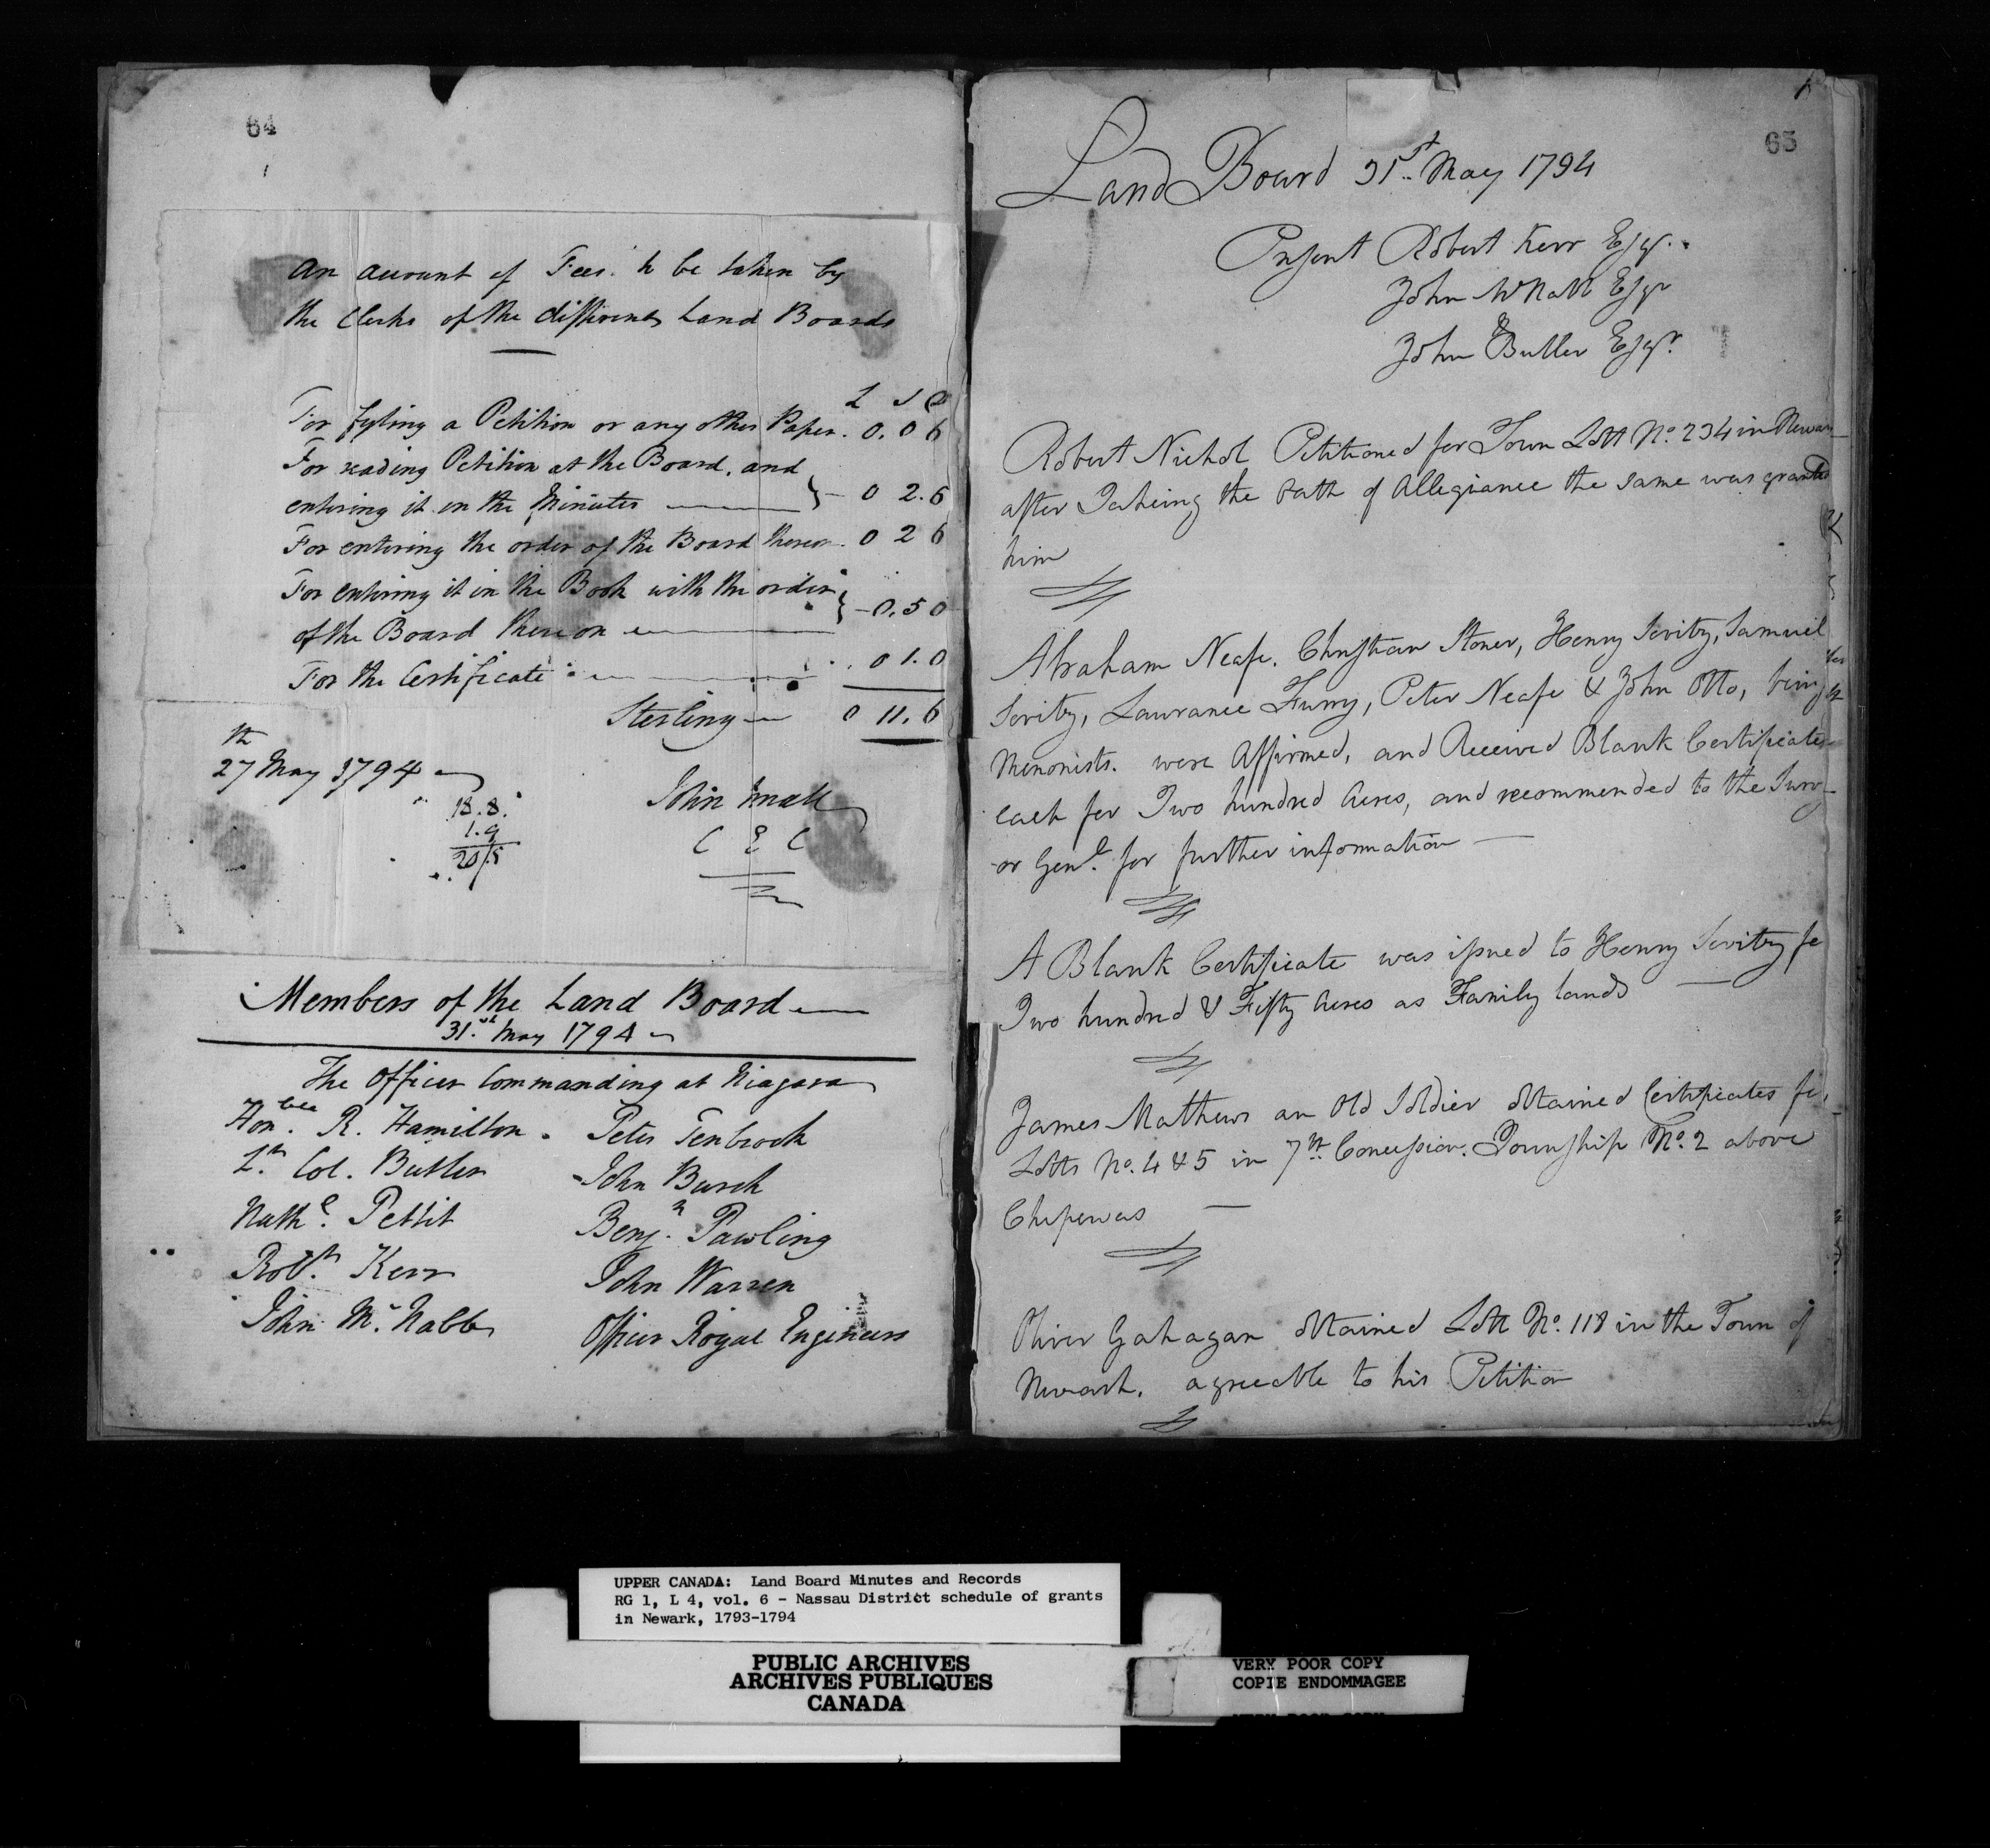 64
An account of Fees to be taken by
the Clerks of the different Land Boards
L S D
For fyling a Petition or any other Paper. 0. 0 6
For reading Petition at the Board, and
entering it in the Minutes } - 0 2. 6
For entering the order of the Board thereon. 0 2 6
For entering it in the Book with the order
of the Board thereon } - 0. 5 0
For the Certificate 0 1. 0
Sterling 0 11. 6
27th May 1794
18.8.
1.9
20/5
John Small
C E C
Members of the Land Board
31.st May 1794
The Officer Commanding at Niagara
Honble. R. Hamilton. Peter Tenbroeck
Lt. Col. Butler John Burch
Nathl. Pettit Benjn. Pawling
Robt. Kerr John Warren
John Mc. Nabb Officer Royal Engineers
65
Land Board 31st May 1794
Present Robert Kerr Esqr.
John McNabb Esqr
John Butler Esqr.
Robert Nichol Petitioned for Town Lott No. 234 in Newark
after Takeing the Oath of Allegiance the same was granted
him
Abraham Neafe. Christian Stoner, Henry Sevitz, Samuel
Sevitz, Lawrance Furry, Peter Neafe & John Otto, being
Menonists. were Affirmed, and Received Blank Certificates
each for Two hundred Acres, and recommended to the Surv-
-or Genl. for further information
A Blank Certificate was issued to Henry Sevitz fo
Two hundred & Fifty Acres as Family lands
James Mathews an Old Soldier obtained Certificates fo
Lotts No. 4 & 5 in 7th. Concession. Township No. 2 above
Chipewas
Oliver Gahagan obtained Lott No. 118 in the Town of
Newark. agreeable to his Petition
UPPER CANADA: Land Board Minutes and Records
RG 1, L 4, vol. 6 - Nassau District schedule of grants
in Newark, 1793-1794
PUBLIC ARCHIVES
ARCHIVES PUBLIQUES
CANADA
VERY POOR COPY
COPIE ENDOMMAGEE
VERY POOR COPY